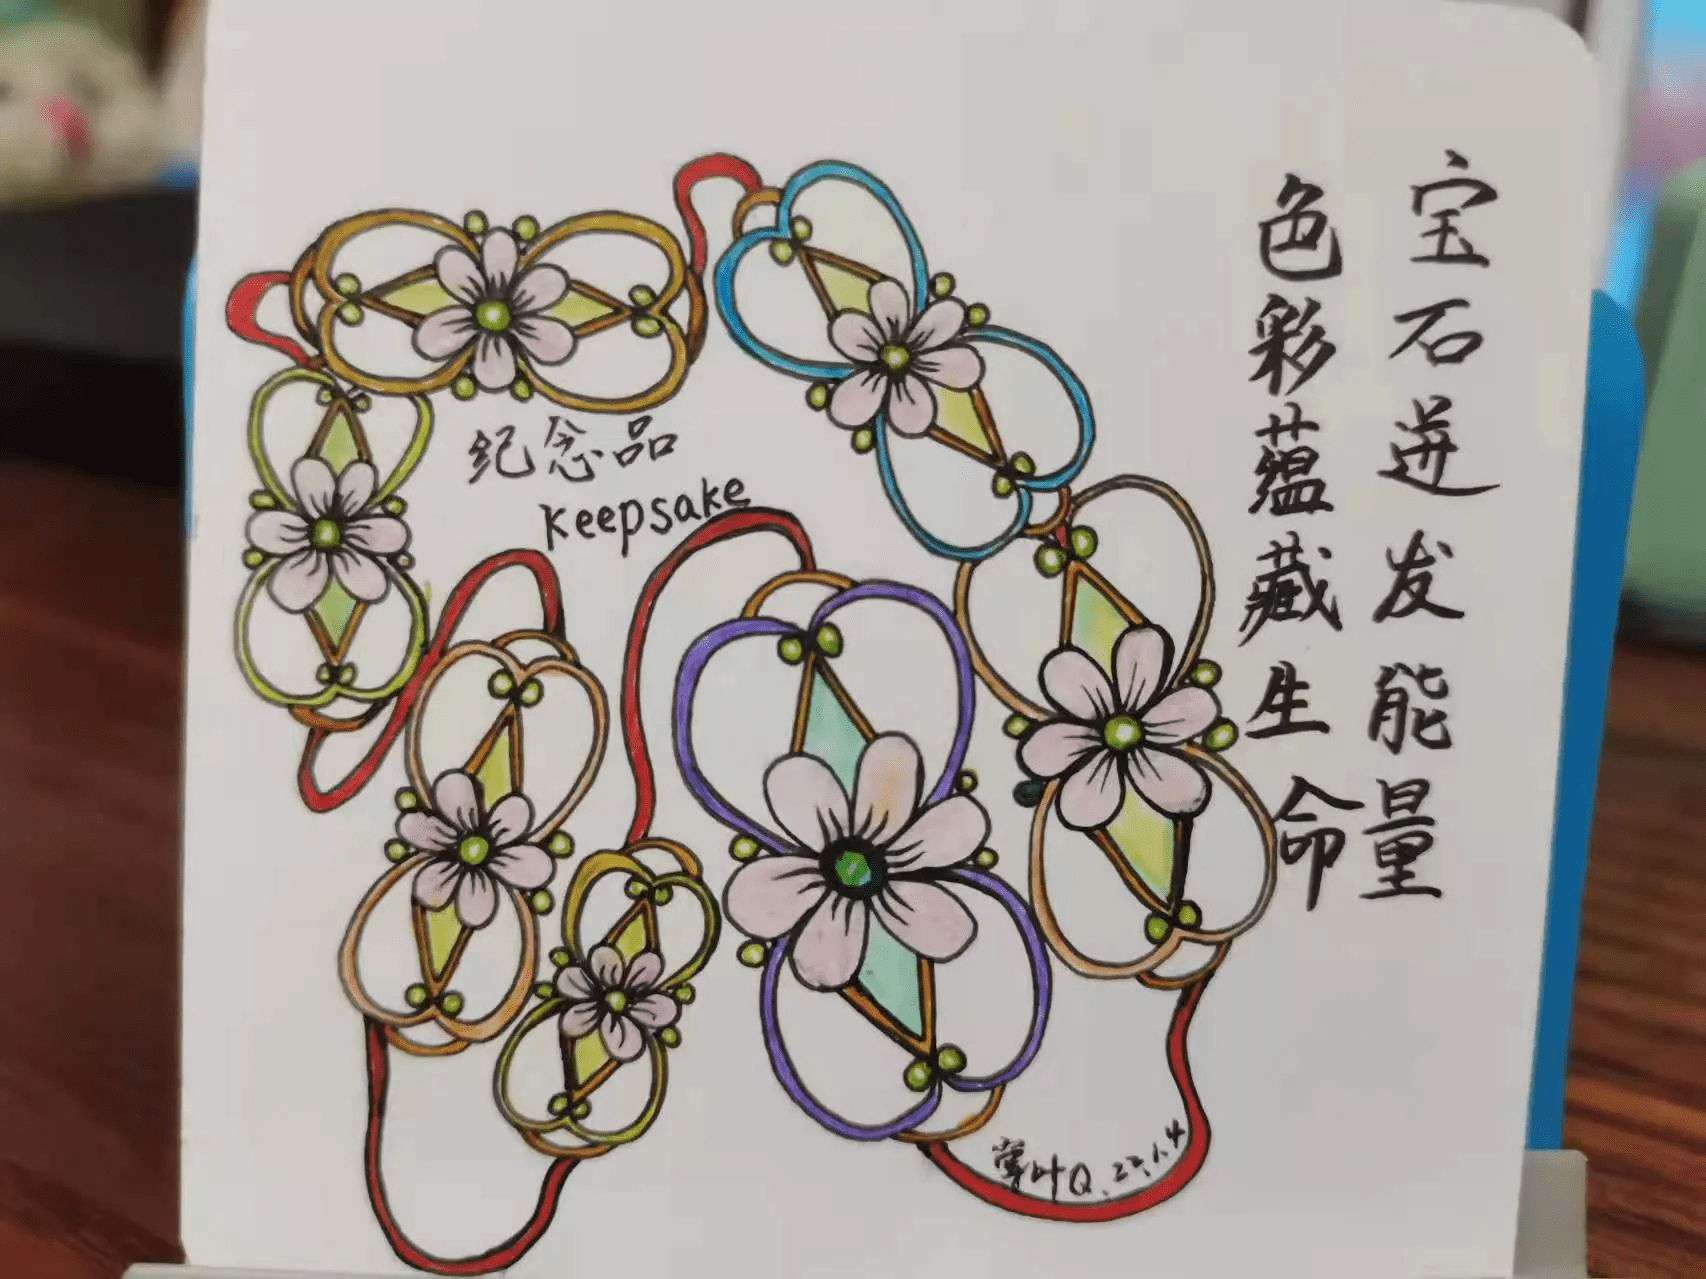 宝石迸发能量
色彩蕴藏生命
纪念品
keepsake
叶Q.23.1.4